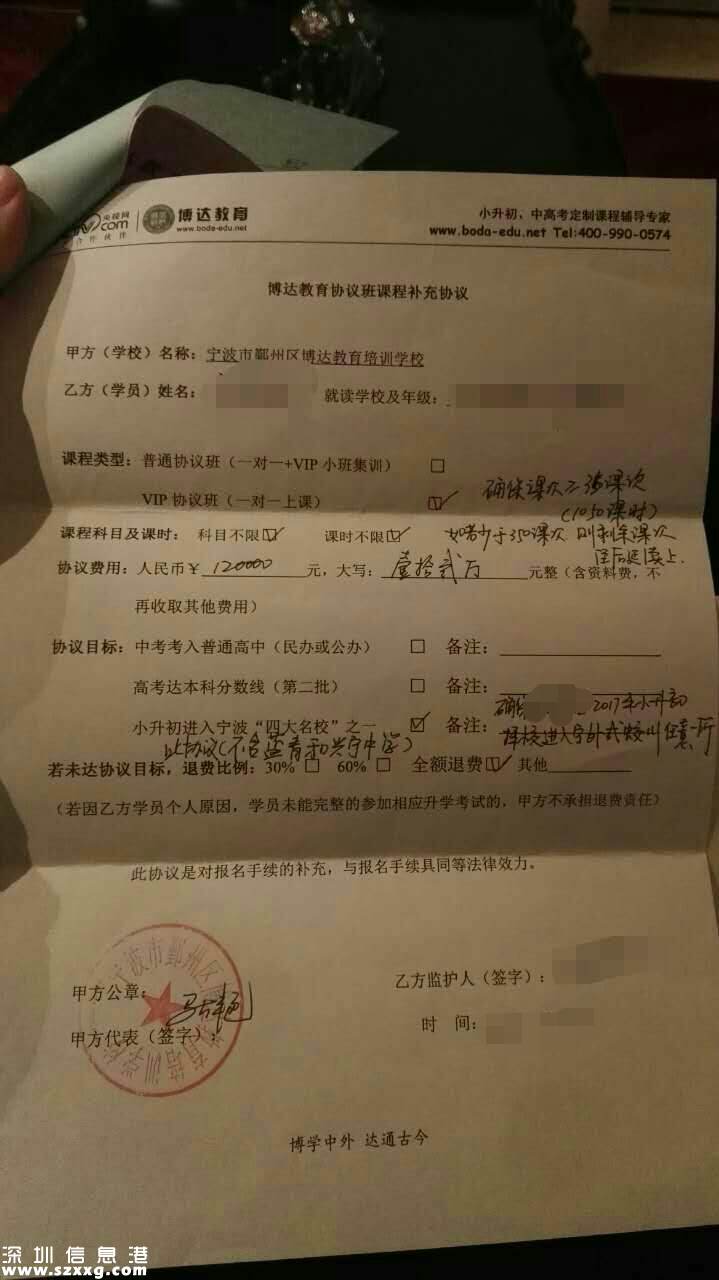 央视网
com
合作伙伴
博达教育
www.boda-edu.net
小升初、中高考定制课程辅导专家
www.boda-edu.net Tel:400-990-0574
博达教育协议班课程补充协议
甲方（学校）名称：宁波市鄞州区博达教育培训学校
乙方（学员）姓名： 就读学校及年级：
课程类型：普通协议班（一对一+VIP 小班集训） □
VIP 协议班（一对一上课） ☑ 确保课次 课次
（1050课时）
课程科目及课时： 科目不限☑ 课时不限☑ 如若少于350课次 则剩余课次
协议费用：人民币￥ 120000 元，大写： 壹拾贰万 元整（含资料费，不
再收取其他费用）
协议目标：中考考入普通高中（民办或公办） □ 备注：
高考达本科分数线（第二批） □ 备注：
确保 2017年小升初
小升初进入宁波“四大名校”之一 ☑ 备注：择校进入宁外或蛟川任意一所
此协议（不含蓝青和兴宁中学）
若未达协议目标，退费比例：30% □ 60% □ 全额退费☑ 其他
（若因乙方学员个人原因，学员未能完整的参加相应升学考试的，甲方不承担退费责任）
此协议是对报名手续的补充，与报名手续具同等法律效力。
宁波市鄞州区
甲方公章：
乙方监护人（签字）：
甲方代表（签字）：
时 间：
博学中外 达通古今
深圳信息港
www.szxxg.com